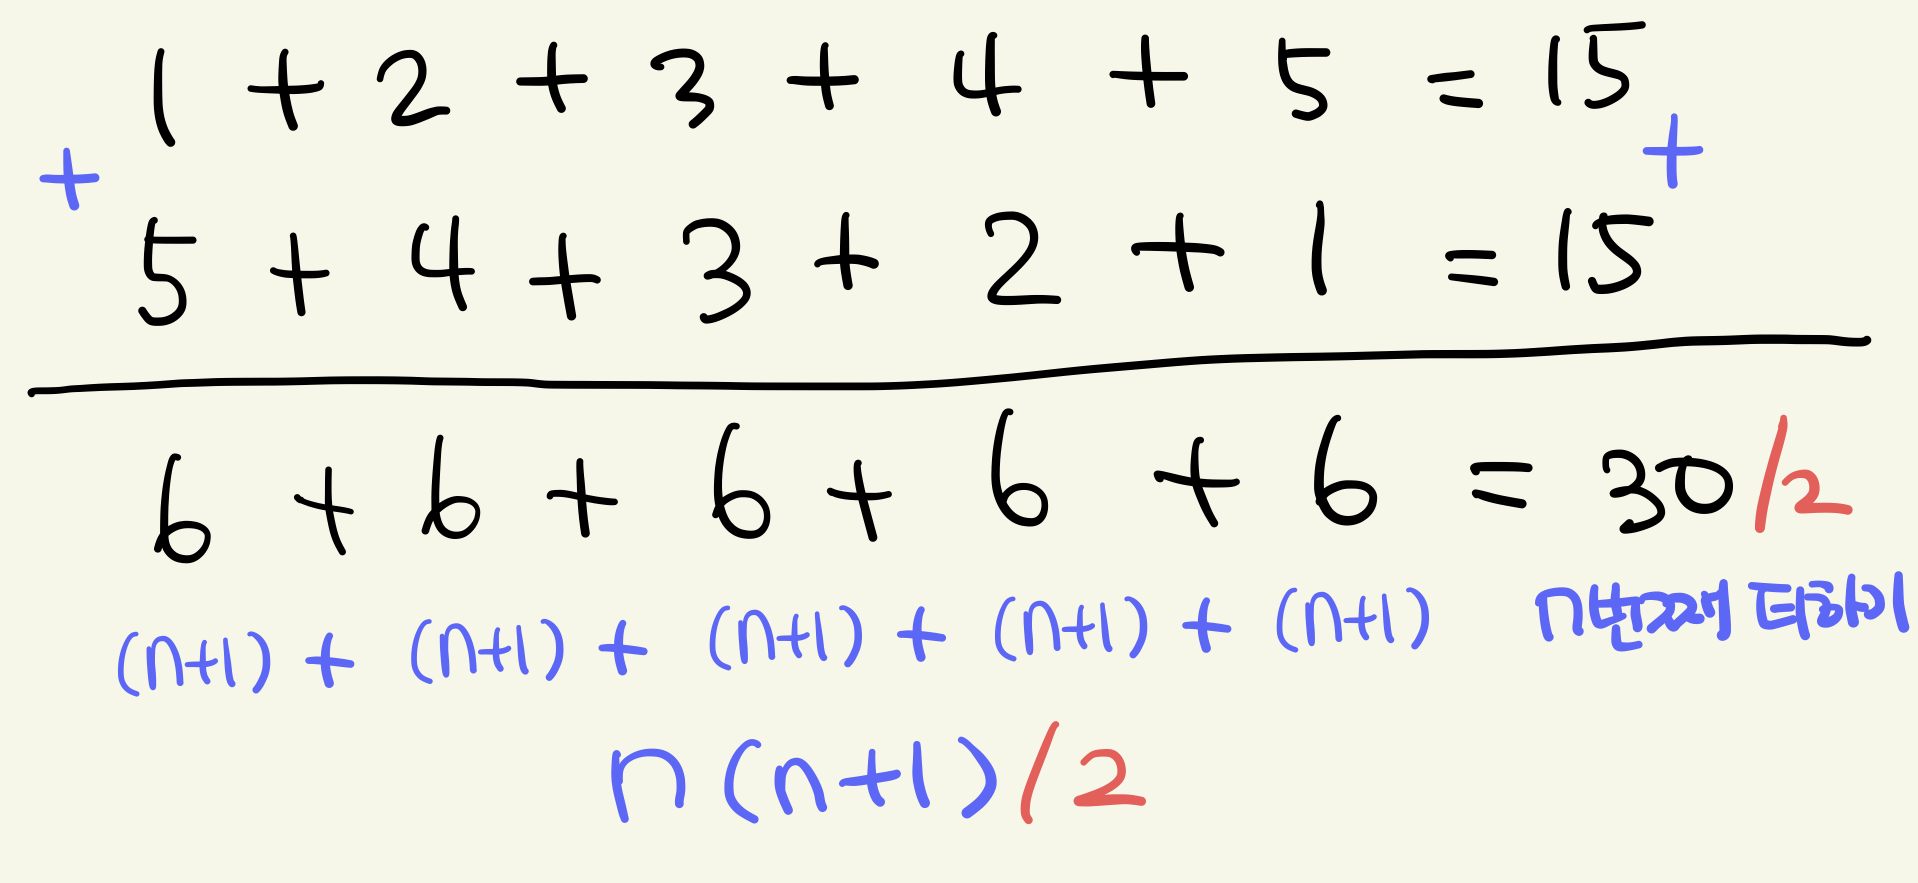 1 + 2 + 3 + 4 + 5 = 15
+ +
5 + 4 + 3 + 2 + 1 = 15
6 + 6 + 6 + 6 + 6 = 30/2
(n+1) + (n+1) + (n+1) + (n+1) + (n+1) n번째 더하기
n(n+1)/2